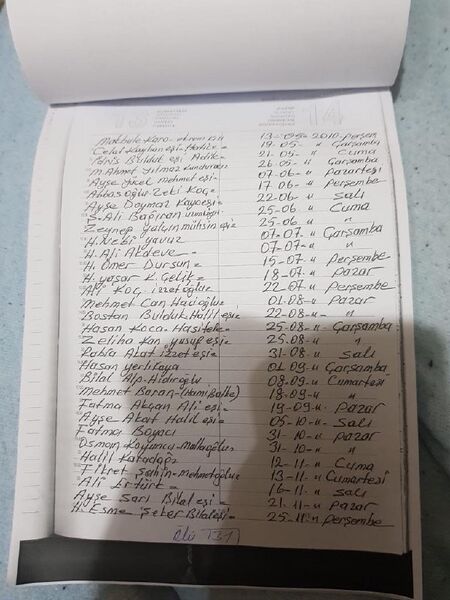 Makbule Kara- 13-05-2010-perşem
Celal Kayhan eşi Hatice= 19-05- " Çarşamba
İdris Buldut eşi Refik= 21-05- " Cuma
M. Ahmet Yılmaz 26-05- " Çarşamba
Ayşe Yücel mehmet eşi- 07-06- " Pazartesi
Abbasoğlu Zeki Koç= 17-06- " Perşembe
Ayşe Doymaz Kaya eşi 22-06- " Salı
B. Ali Bağıran 25-06 " Cuma
Zeynep Yalçın muhsin eşi= 25-06 " "
H. Nebi yavuz 07-07- " Çarşamba
H. Ali Akdeve= 07-07- " "
H. Ömer Dursun= 15-07- " Perşembe
H. yaşar K. Çelik= 18-07- " Pazar
Ali Koç izzetoğlu 22-07- " Perşembe
Mehmet Can Hacıoğlu= 01.08- " Pazar
Bostan Bulduk Halil eşi= 22-08- "
Hasan Koca- 25-08- " Çarşamba
Zeliha Kan yusuf eşi= 25-08- " "
Rabia Akat izzet eşi= 31-08- " Salı
Hasan yerlikaya 01.09- " Çarşamba
Bilal Alp-Hıdıroğlu 08-09- " Cumartesi
Mehmet Baran- 18-09- " "
Fatma Akçan Ali eşi= 19-09- " Pazar
Ayşe Akart Halil eşi= 05-10- " Salı
Fatma Boyacı 31-10- " Pazar
Osman Koyuncu-Mollaoğlu= 31-10- " "
Halil Karadağ 12-11- " Cuma
Fikret Şahin-mehmetoğlu= 13-11- " Cumartesi
Ali Ertürk= 16-11- " Salı
Ayşe Sarı Bilal eşi= 21-11- " Pazar
H. Esme Şeker Bilal eşi= 25-11- " Perşembe
Ölü (31)